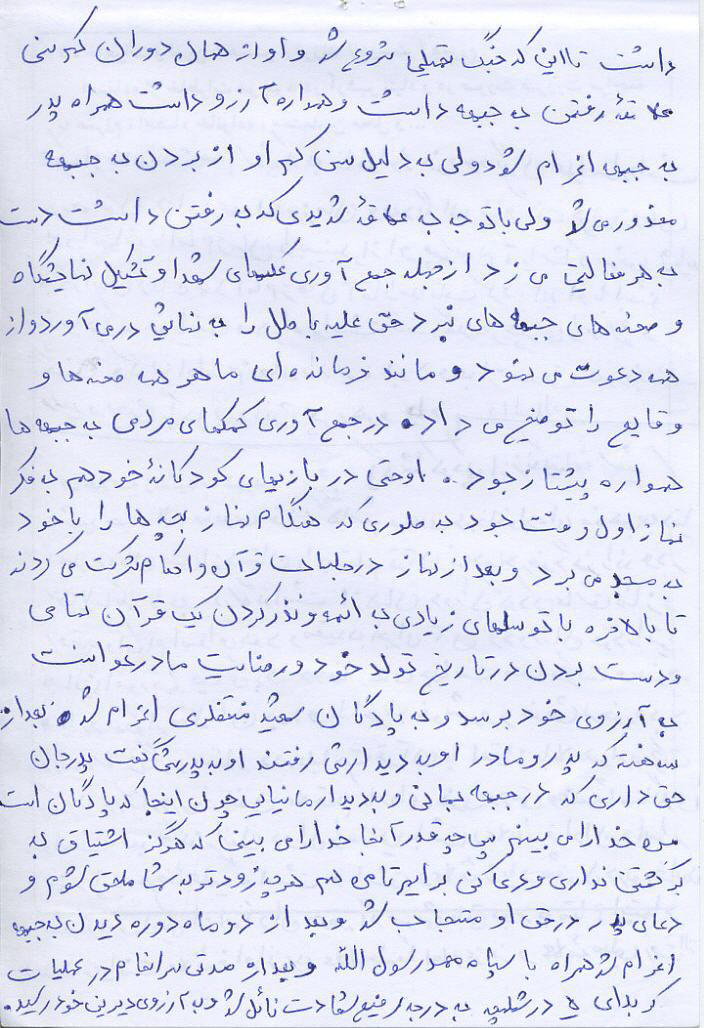 داشت تا این که جنگ تحمیلی شروع شد و او از همان دوران کم سنی
علاقهٔ رفتن به جبهه داشت و همواره آرزو داشت همراه پدر
به جبهه اعزام شود ولی به دلیل سن کم او از بردن به جبهه
معذور می شد ولی با توجه به علاقهٔ شدیدی که به رفتن داشت دست
به هر فعالیتی می زد از جمله جمع آوری عکسهای شهدا و تشکیل نمایشگاه
و صحنه های جبهه های نبرد حق علیه باطل را به نمایش در می آورد و از
همه دعوت می نمود و مانند فرمانده ای ماهر همه صحنه ها و
وقایع را توضیح می داد. در جمع آوری کمکهای مردمی به جبهه ها
همواره پیشتاز بود. او حتی در بازیهای کودکانهٔ خود هم به فکر
نماز اول وقت بود به طوری که هنگام نماز بچه ها را با خود
به مسجد می برد و بعد از نماز در جلسات قرآن و احکام شرکت می کردند
تا بالاخره با توسلهای زیادی به ائمه و نذر کردن یک قرآن تمامی
و دست بردن در تاریخ تولد خود و رضایت مادر توانست
به آرزوی خود برسد و به پادگان شهید منتظری اعزام شد. بعد از
سه هفته که پدر و مادر او به دیدارش رفتند او به پدرش گفت پدر جان
حق داری که در جبهه بمانی و به دیدار ما نیایی چون اینجا که پادگان است
من خدا را می بینم پس چه قدر آنجا خدا را می بینی که هرگز اشتیاق به
برگشتن نداری و دعا کن برایم تا من هم هر چه زودتر به شما ملحق شوم و
دعای پدر در حق او مستجاب شد و بعد از دو ماه دوره دیدن به جبهه
اعزام شد همراه با سپاه محمد رسول الله و بعد از مدتی سرانجام در عملیات
کربلای ۵ در شلمچه به درجه رفیع شهادت نائل شد و به آرزوی دیرین خود رسید.